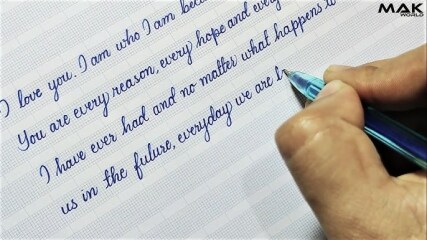 MAK
WORLD
I love you. I am who I am
You are every reason, every hope and
I have ever had and no matter what happens
us in the future, everyday we are